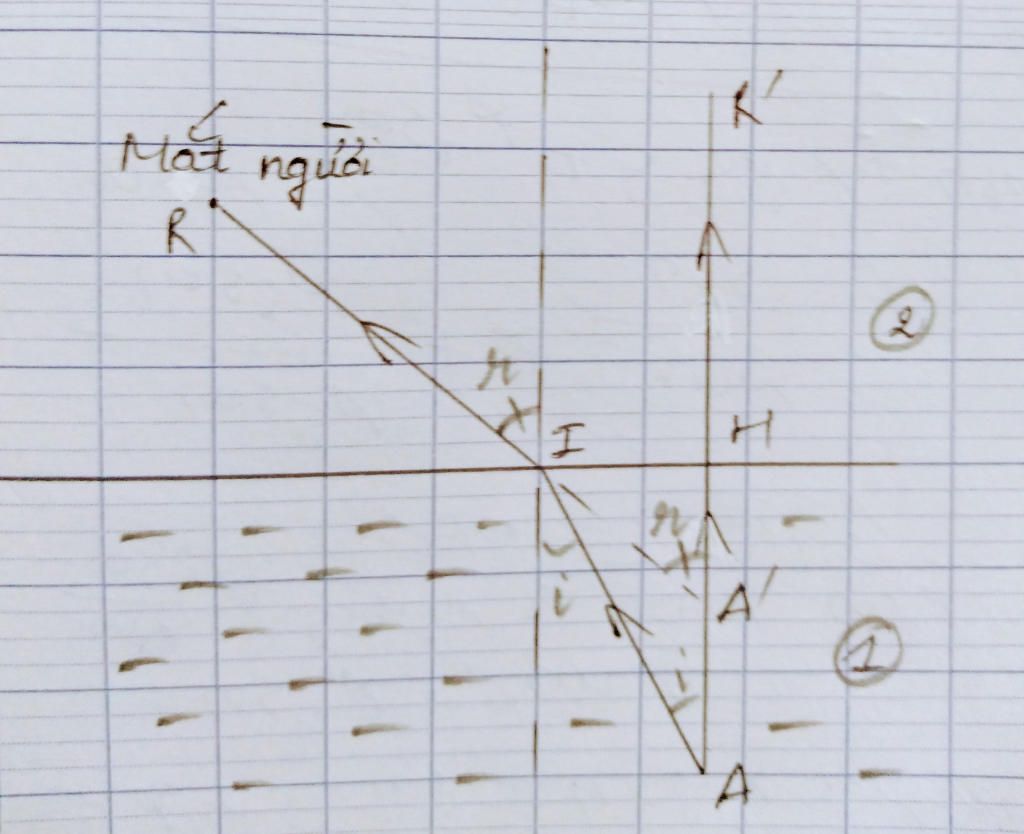 R'
Mắt người
R
2
r
I
H
r
i
A'
1
i
A